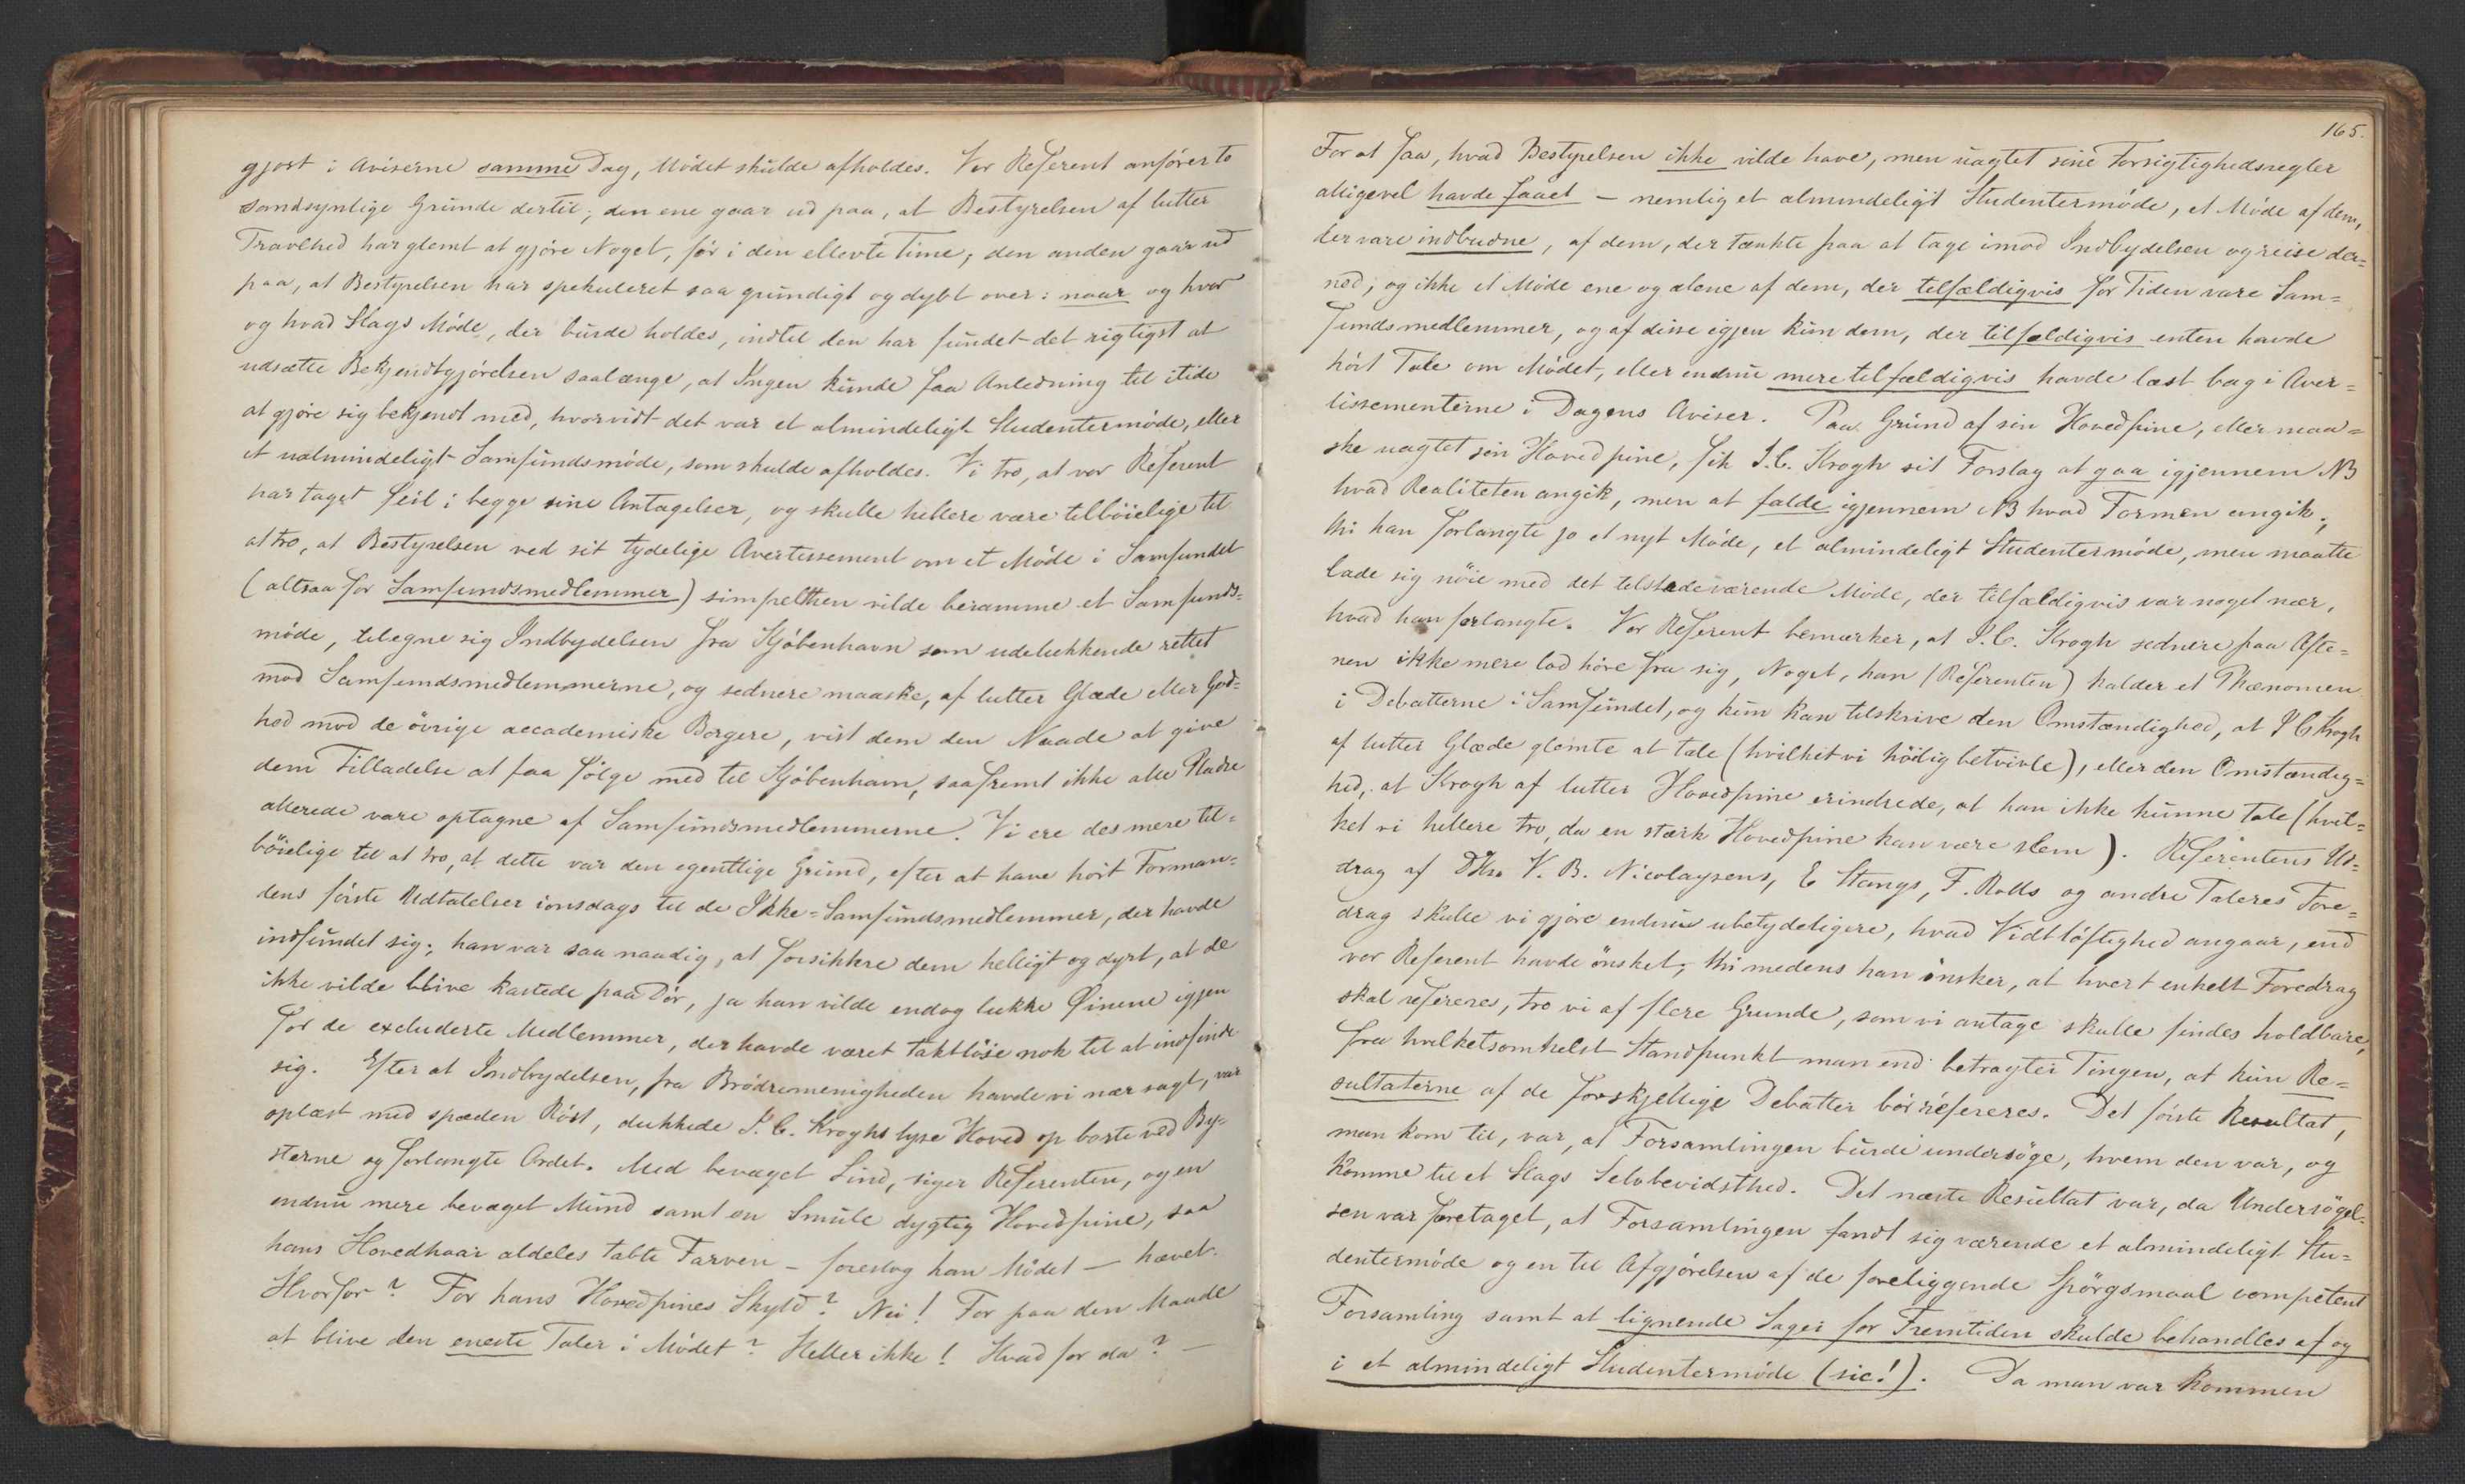 gjort i Aviserne samme Dag, Mødet skulde afholdes. Vor Referent anfører to
sandsynlige Grunde dertil; den ene gaar ud paa, at Bestyrelsen af lutter
Travlhed har glemt at gjøre Noget, før i den ellevte Time; den anden gaar ud
paa, at Bestyrelsen har spekuleret saa grundigt og dybt over: naar og hvor
og hvad Slags Møde, der burde holdes, indtil den har fundet det rigtigst at
udsætte Bekjendtgjørelsen saalænge, at Ingen kunde faa Anledning til itide
at gjøre sig bekjendt med, hvorvidt det var et almindeligt Studentermøde, eller
et ualmindeligt Samfundsmøde, som skulde afholdes. Vi tro, at vor Referent
har taget feil i begge sine Antagelser, og skulle hellere være tilbøielige til
at tro, at Bestyrelsen ved sit tydelige Avertissement om et Møde i Samfundet
(altsaa for Samfundsmedlemmer) simpelthen vilde beramme et Samfunds-
møde, tilegne sig Indbydelsen fra Kjøbenhavn som udelukkende rettet
mod Samfundsmedlemmerne, og sednere maaske, af lutter Glæde eller God-
hed mod de øvrige accademiske Borgere, vist dem den Naade at give
dem Tilladelse at faa følge med til Kjøbenhavn, saafremt ikke alle Pladse
allerede vare optagne af Samfundsmedlemmerne. Vi ere des mere til-
bøielige til at tro, at dette var den egentlige Grund, efter at have hørt Forman-
dens første Udtalelser ionsdags til de Ikke-Samfundsmedlemmer, der havde
indfundet sig; han var saa naadig, at forsikkre dem helligt og dyrt, at de
ikke vilde blive kastede paa Dør, ja han vilde endog lukke Øinene igjen
for de excluderte Medlemmer, der havde været taktløse nok til at indfinde
sig. Efter at Indbydelsen, fra Brødremenigheden havde vi nær sagt, var
oplæst med spæden Røst, dukkede I. C. Kroghs lyse Hoved op borte ved By-
sterne og forlangte Ordet. Med bevæget Sind, siger Referenten, og en
endnu mere bevæget Mund samt en Smule dygtig Hovedpine, saa
hans Hovedhaar aldeles tabte Farven – foreslog han Mødet – hævet.
Hvorfor? For hans Hovedpines Skyld? Nei! For paa den Maade
at blive den eneste Taler i Mødet? Heller ikke! Hvad for da? –
165.
For at faa, hvad Bestyrelsen ikke vilde have, men uagtet sine Forsigtighedsregler
alligevel havde faaet – nemlig et almindeligt Studentermøde, et Møde af dem,
der vare indbudne, af dem, der tænkte paa at tage imod Indbydelsen og reise der-
ned; og ikke et Møde ene og alene af dem, der tilfældigvis for Tiden vare Sam-
fundsmedlemmer, og af disse igjen kun dem, der tilfældigvis enten havde
hørt Tale om Mødet, eller endnu mere tilfældigvis havde læst bag i Aver-
tissementerne i Dagens Aviser. Paa Grund af sin Hovedpine, eller maa-
ske uagtet sin Hovedpine, fik I. C. Krogh sit Forslag at gaa igjennem NB
hvad Realiteten angik, men at falde igjennem NB hvad Formen angik;
thi han forlangte jo et nyt Møde, et almindeligt Studentermøde, men maatte
lade sig nøie med det tilstedeværende Møde, der tilfældigvis var noget nær,
hvad han forlangte. Vor Referent bemærker, at I. C. Krogh sednere paa Afte-
nen ikke mere lod høre fra sig, Noget, han (Referenten) kalder et Phænomen
i Debatterne i Samfundet, og kun kan tilskrive den Omstændighed, at I C Krogh
af lutter Glæde glemte at tale (hvilket vi høilig betvivle), eller den Omstændig-
hed, at Krogh af lutter Hovedpine erindrede, at han ikke kunne tale (hvil-
ket vi hellere tro, da en stærk Hovedpine kan være slem). Referentens Ud-
drag af DHrr. V. B. Nicolaysens, E Stangs, F. Rolls og andre Taleres Fore-
drag skulle vi gjøre endnu ubetydeligere, hvad Vidtløftighed angaar, end
vor Referent havde ønsket; thi medens han ønsker, at hvert enkelt Foredrag
skal refereres, tro vi af flere Grunde, som vi antage skulle findes holdbare,
fra hvilketsomhelst Standpunkt man end betragter Tingen, at kun Re-
sultaterne af de forskjellige Debatter bør refereres. Det første Resultat,
man kom til, var, at Forsamlingen burde undersøge, hvem den var, og
komme til et Slags Selvbevidsthed. Det næste Resultat var, da Undersøgel-
sen var foretaget, at Forsamlingen fandt sig værende et almindeligt Stu-
dentermøde og en til Afgjørelsen af de foreliggende Spørgsmaal competent
Forsamling samt at lignende Sager for Fremtiden skulde behandles af og
i et almindeligt Studentermøde (sic!). Da man var kommen